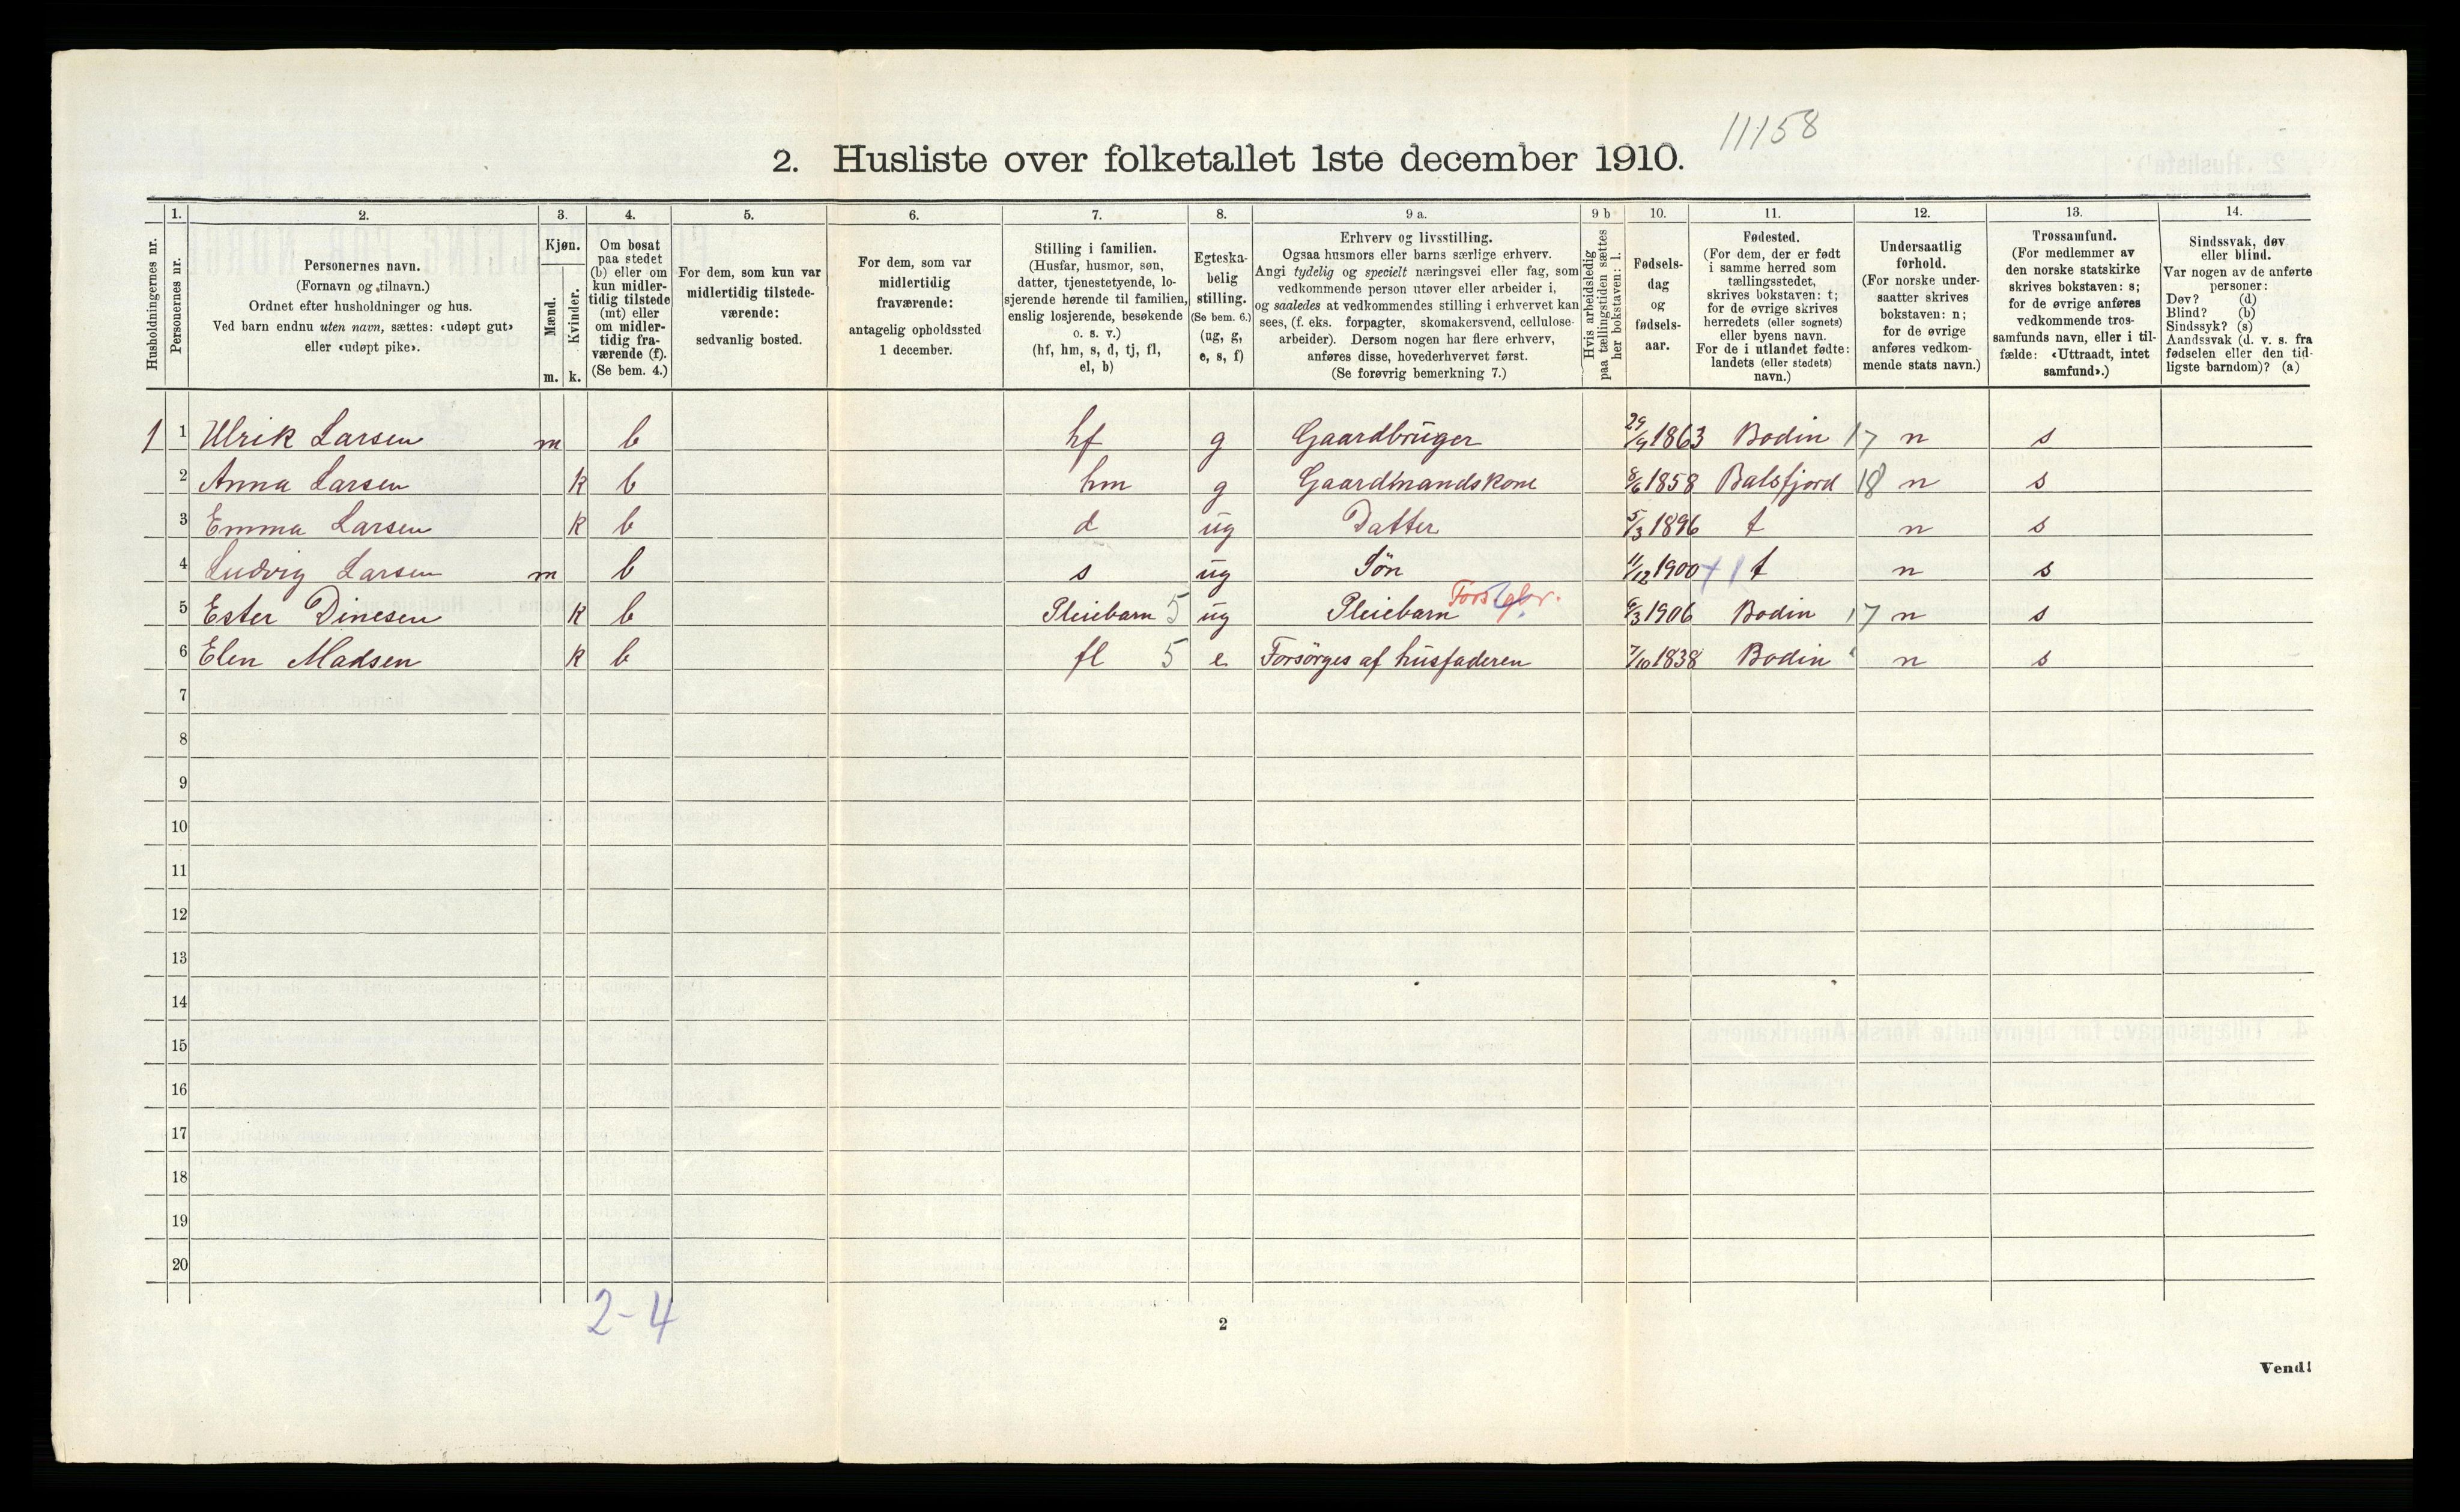 11158
2. Husliste over folketallet 1ste december 1910.
1. 2. 3. 4. 5. 6. 7. 8. 9 a. 9 b 10. 11. 12. 13. 14.
Husholdningernes nr.
Personernes nr.
Personernes navn.
(Fornavn og tilnavn.)
Ordnet efter husholdninger og hus.
Ved barn endnu uten navn, sættes: «udøpt gut»
eller «udøpt pike».
Kjøn.
Mænd.
Kvinder.
m. k.
Om bosat
paa stedet
(b) eller om
kun midler-
tidig tilstede
(mt) eller
om midler-
tidig fra-
værende (f).
(Se bem. 4.)
For dem, som kun var
midlertidig tilstede-
værende:
sedvanlig bosted.
For dem, som var
midlertidig
fraværende:
antagelig opholdssted
1 december.
Stilling i familien.
(Husfar, husmor, søn,
datter, tjenestetyende, lo-
sjerende hørende til familien,
enslig losjerende, besøkende
o. s. v.)
(hf, hm, s, d, tj, fl,
el, b)
Egteska-
belig
stilling.
(Se bem. 6.)
(ug, g,
e, s, f)
Erhverv og livsstilling.
Ogsaa husmors eller barns særlige erhverv.
Angi tydelig og specielt næringsvei eller fag, som
vedkommende person utøver eller arbeider i,
og saaledes at vedkommendes stilling i erhvervet kan
sees, (f. eks. forpagter, skomakersvend, cellulose-
arbeider). Dersom nogen har flere erhverv,
anføres disse, hovederhvervet først.
(Se forøvrig bemerkning 7.)
Hvis arbeidsledig
paa tællingstiden sættes
her bokstaven: l.
Fødsels-
dag
og
fødsels-
aar.
Fødested.
(For dem, der er født
i samme herred som
tællingsstedet,
skrives bokstaven: t;
for de øvrige skrives
herredets (eller sognets)
eller byens navn.
For de i utlandet fødte:
landets (eller stedets)
navn.)
Undersaatlig
forhold.
(For norske under-
saatter skrives
bokstaven: n;
for de øvrige
anføres vedkom-
mende stats navn.)
Trossamfund.
(For medlemmer av
den norske statskirke
skrives bokstaven: s;
for de øvrige anføres
vedkommende tros-
samfunds navn, eller i til-
fælde: «Uttraadt, intet
samfund».)
Sindssvak, døv
eller blind.
Var nogen av de anførte
personer:
Døv? (d)
Blind? (b)
Sindssyk? (s)
Aandssvak (d. v. s. fra
fødselen eller den tid-
ligste barndom)? (a)
1 1 Ulrik Larsen m b hf g Gaardbruger 29/9 1863 Bodin 17 n s
2 Anna Larsen k b hm g Gaardmandskone 8/6 1858 Balsfjord 18 n s
3 Emma Larsen k b d ug Datter 5/3 1896 t n s
4 Ludvig Larsen m b s ug Søn 11/12 1900 t n s
5 Ester Dinesen k b Pleiebarn 5 ug Pleiebarn 6/3 1906 Bodin 17 n s
6 Elen Madsen k b fl 5 e Forsørges af husfaderen 7/10 1838 Bodin n s
7
8
9
10
11
12
13
14
15
16
17
18
19
20
2-4
2
Vend!